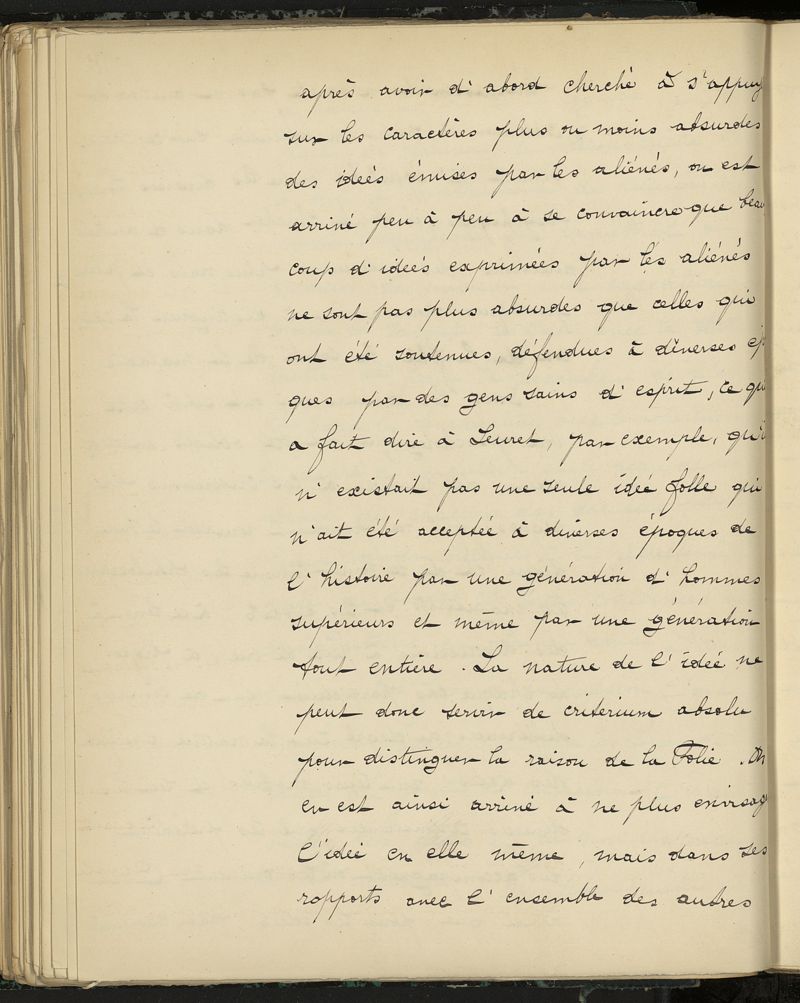 après avoir d'abord cherché à s'appuy
sur les caractères plus ou moins absurdes
des idées émises par les aliénés, on est
arrivé peu à peu à se convaincre que beau
coup d'idées exprimées par les aliénés
ne sont pas plus absurdes que celles qui
ont été soutenues, défendues à diverses ép
ques par des gens sains d'esprit, ce qu
a fait dire à Leuret, par exemple, qu'i
n'existait pas une seule idée folle qui
n'ait été acceptée à diverses époques de
l'histoire par une génération d'hommes
supérieurs et même par une génération
tout entière. La nature de l'idée ne
peut donc servir de criterium absolu
pour distinguer la raison de la Folie. On
en est ainsi arrivé à ne plus envisag
l'idée en elle même, mais dans ses
rapports avec l'ensemble des autres